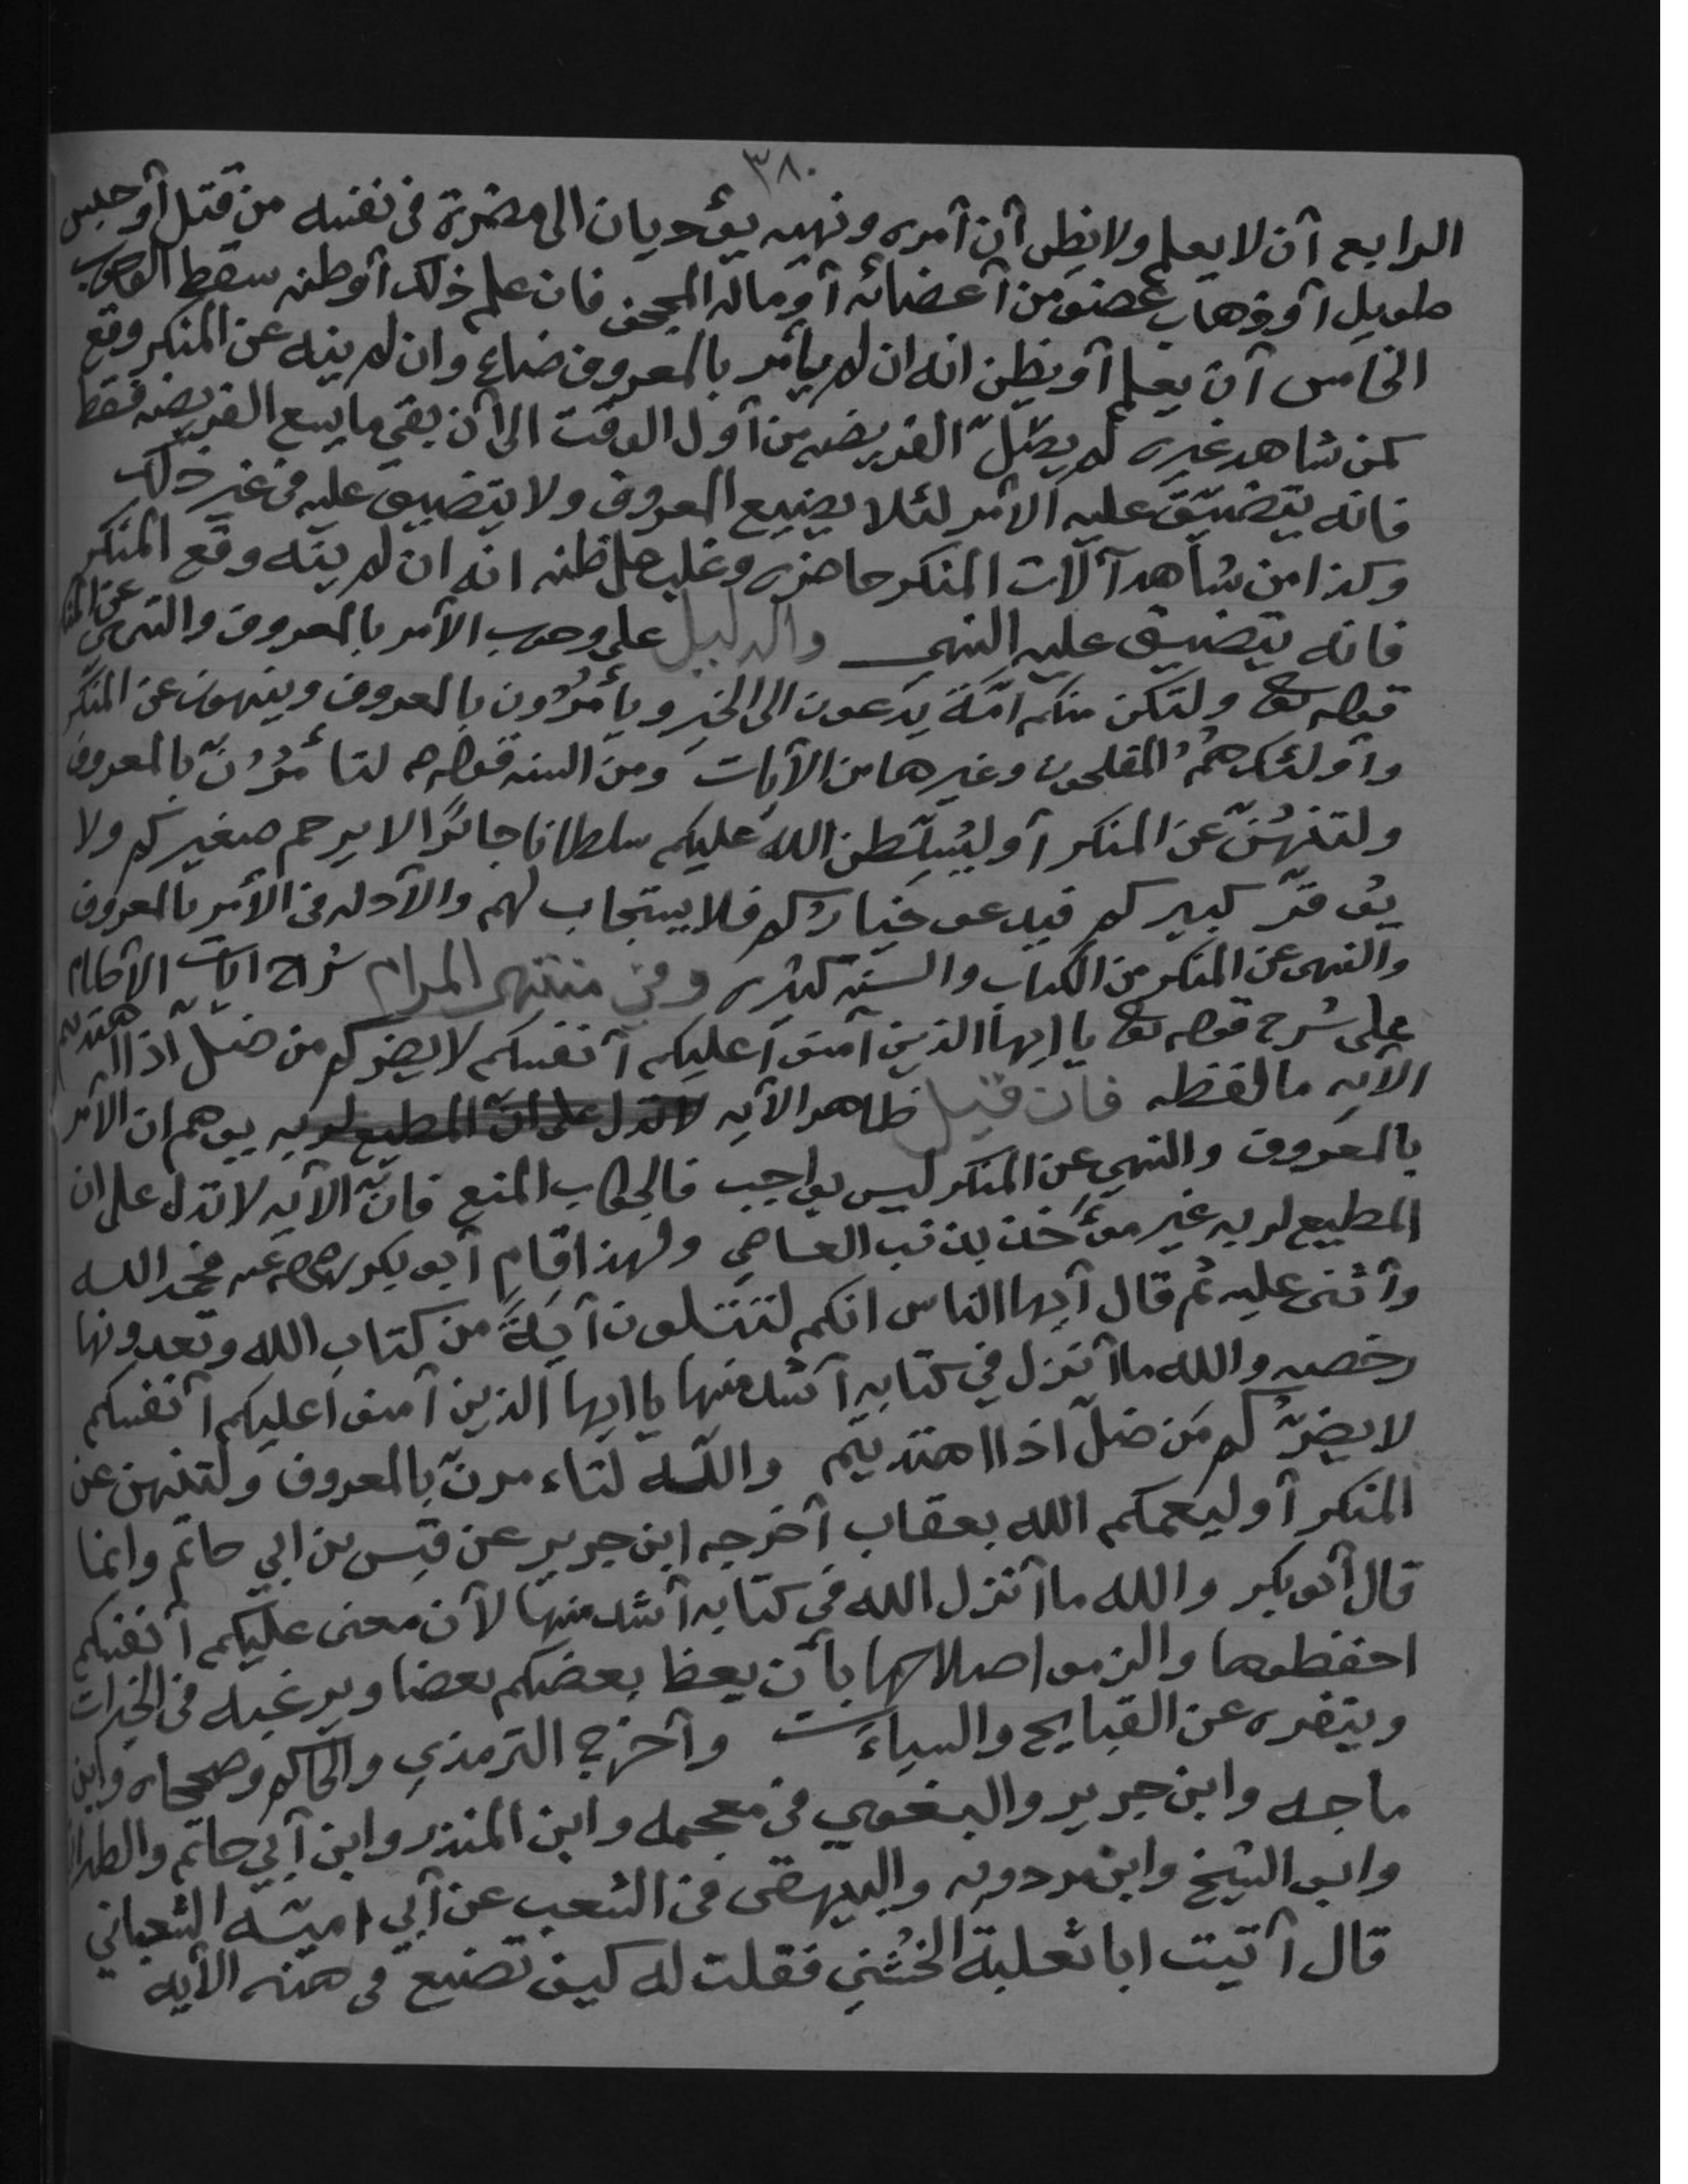 ٣٨٠
الرابع أن لا يعلم ولا يظن أن أمره ونهيه يؤديان الى مضرة في نفسه من قتل أو حبس
طويل أو ذهاب عضو من أعضائه أو ماله المجحف فان علم ذلك أو ظنه سقط الوجوب
الخامس أن يعلم أو يظن انه ان لم يأمر بالمعروف ضاع وان لم ينه عن المنكر وقع
كمن شاهد غيره لم يصلّ الفريضه من أول الوقت الى أن بقي ما يسع الفريضه فقط
فانه يتضيّق عليه الأمر لئلا يضيع المعروف ولا يتضيق عليه في غير ذلك
وكذا من شاهد آلات المنكر حاضره وغلب على ظنه انه ان لم ينه وقع المنكر
فانه يتضيق عليه النهي والدليل على وجوب الأمر بالمعروف والنهي عن المنكر
قوله تع ولتكن منكم أمّة يدعون الى الخير ويأمُرُون بالمعروف وينهون عن المنكر
وأولئك همُ المفلحون وغيرها من الآيات ومن السنه قوله ص لتأمُرُنّ بالمعروف
ولتنهُنّ عن المنكر أو ليُسلّطن الله عليكم سلطانا جائرًا لا يرحم صغيركم ولا
يوقرّ كبيركم فيدعو خياركم فلا يستجاب لهم والأدله في الأمر بالمعروف
والنهي عن المنكر من الكتاب والسنّه كثيره وفي منتهى المرام شرح ايات الأحكام
على شرح قوله تع يا ايها الذين آمنوا عليكم أنفسكم لا يضركم من ضلّ اذا اهتديتم
الآيه ما لفظه فان قيل ظاهر الآيه لا تدل على انّ المطيع لربه يوهم ان الأمر
بالمعروف والنهي عن المنكر ليس بواجب فالجواب المنع فانّ الآيه لا تدل على ان
المطيع لربه غير مؤَخذ بذنب العاصي ولهذا قام أبو بكر رضي الله عنه فحمد الله
وأثنى عليه ثم قال أيها الناس انكم لتتلون آيةً من كتاب الله وتعدونها
رخصه والله ما أنزل في كتابه أشد منها يا ايها الذين آمنوا عليكم أنفسكم
لا يضرُّكم مَن ضلّ اذا اهتديتم واللّه لتاءمرنّ بالمعروف ولتنهن عن
المنكر أو ليعمكم الله بعقاب أخرجه ابن جرير عن قيس بن ابي حاتم وانما
قال أبو بكر والله ما أنزل الله في كتابه أشد منها لأن معنى عليكم أنفسكم
احفظوها والزمو اصلاحها بأن يعظ بعضكم بعضا ويرغبه في الخيرات
وينفره عن القبايح والسياءت وأخرج الترمذي والحاكم وصححاه وابن
ماجه وابن جرير والبغوي في معجمه وابن المنذر وابن أبي حاتم والطبراني
وابو الشيخ وابن مردويه والبيهقي في الشعب عن أبي اميّه الشعباني
قال أتيت ابا ثعلبة الخُشنِي فقلت له كيف تصنع في هذه الآيه